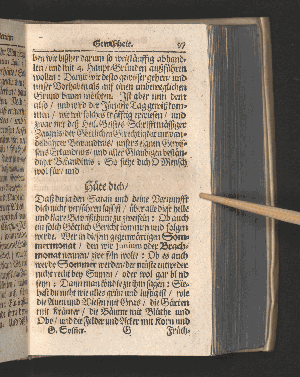 Gewißheit. 97
ben wir bißher darum so weitläufftig abhand-
len / und mit 4. Haupt-Gründen außführen
wollen: Damit wir desto gewisser gehen / und
unser Vorhaben als auf einen unbeweglichen
Grund bauen möchten. Ist aber nun deme
also / und wird der Jüngste Tag gewiß kom-
men / wie wir solches träfftig erwiesen / und
zwar mit deß Heil. Geistes Schrifftmässiger
Zeugnis der Göttlichen Gerechtigkeit
unsers eignen Gewis-
sens und aller Glaubigen
So siehe dich O Mensch
wol für / und
Hüte dich /
Daß du ja den Satan und deine Vernunfft
dich nicht verführen lassest / über alle diese helle
und klare zu zweifeln: Ob auch
ein solch Göttlich Gericht kommen und folgen
werde. Wer in diesem gegenwärtigen Som-
mermonat / den wir Junium oder Brach-
monat nennen / wolte: Ob es auch
werde Sommer werden / der müste entweder
nicht recht bey Sinnen / oder wol gar blind
seyn: Dann man könte zu ihm sagen: Sie-
hest du nicht wie alles grün und lustig ist / wie
die Auen und Wiesen mit Gras / die Gärten
mit Kräuter / die Bäume mit Blüthe und
Obs / und die Felder und Äcker mit Korn und
G Früch-